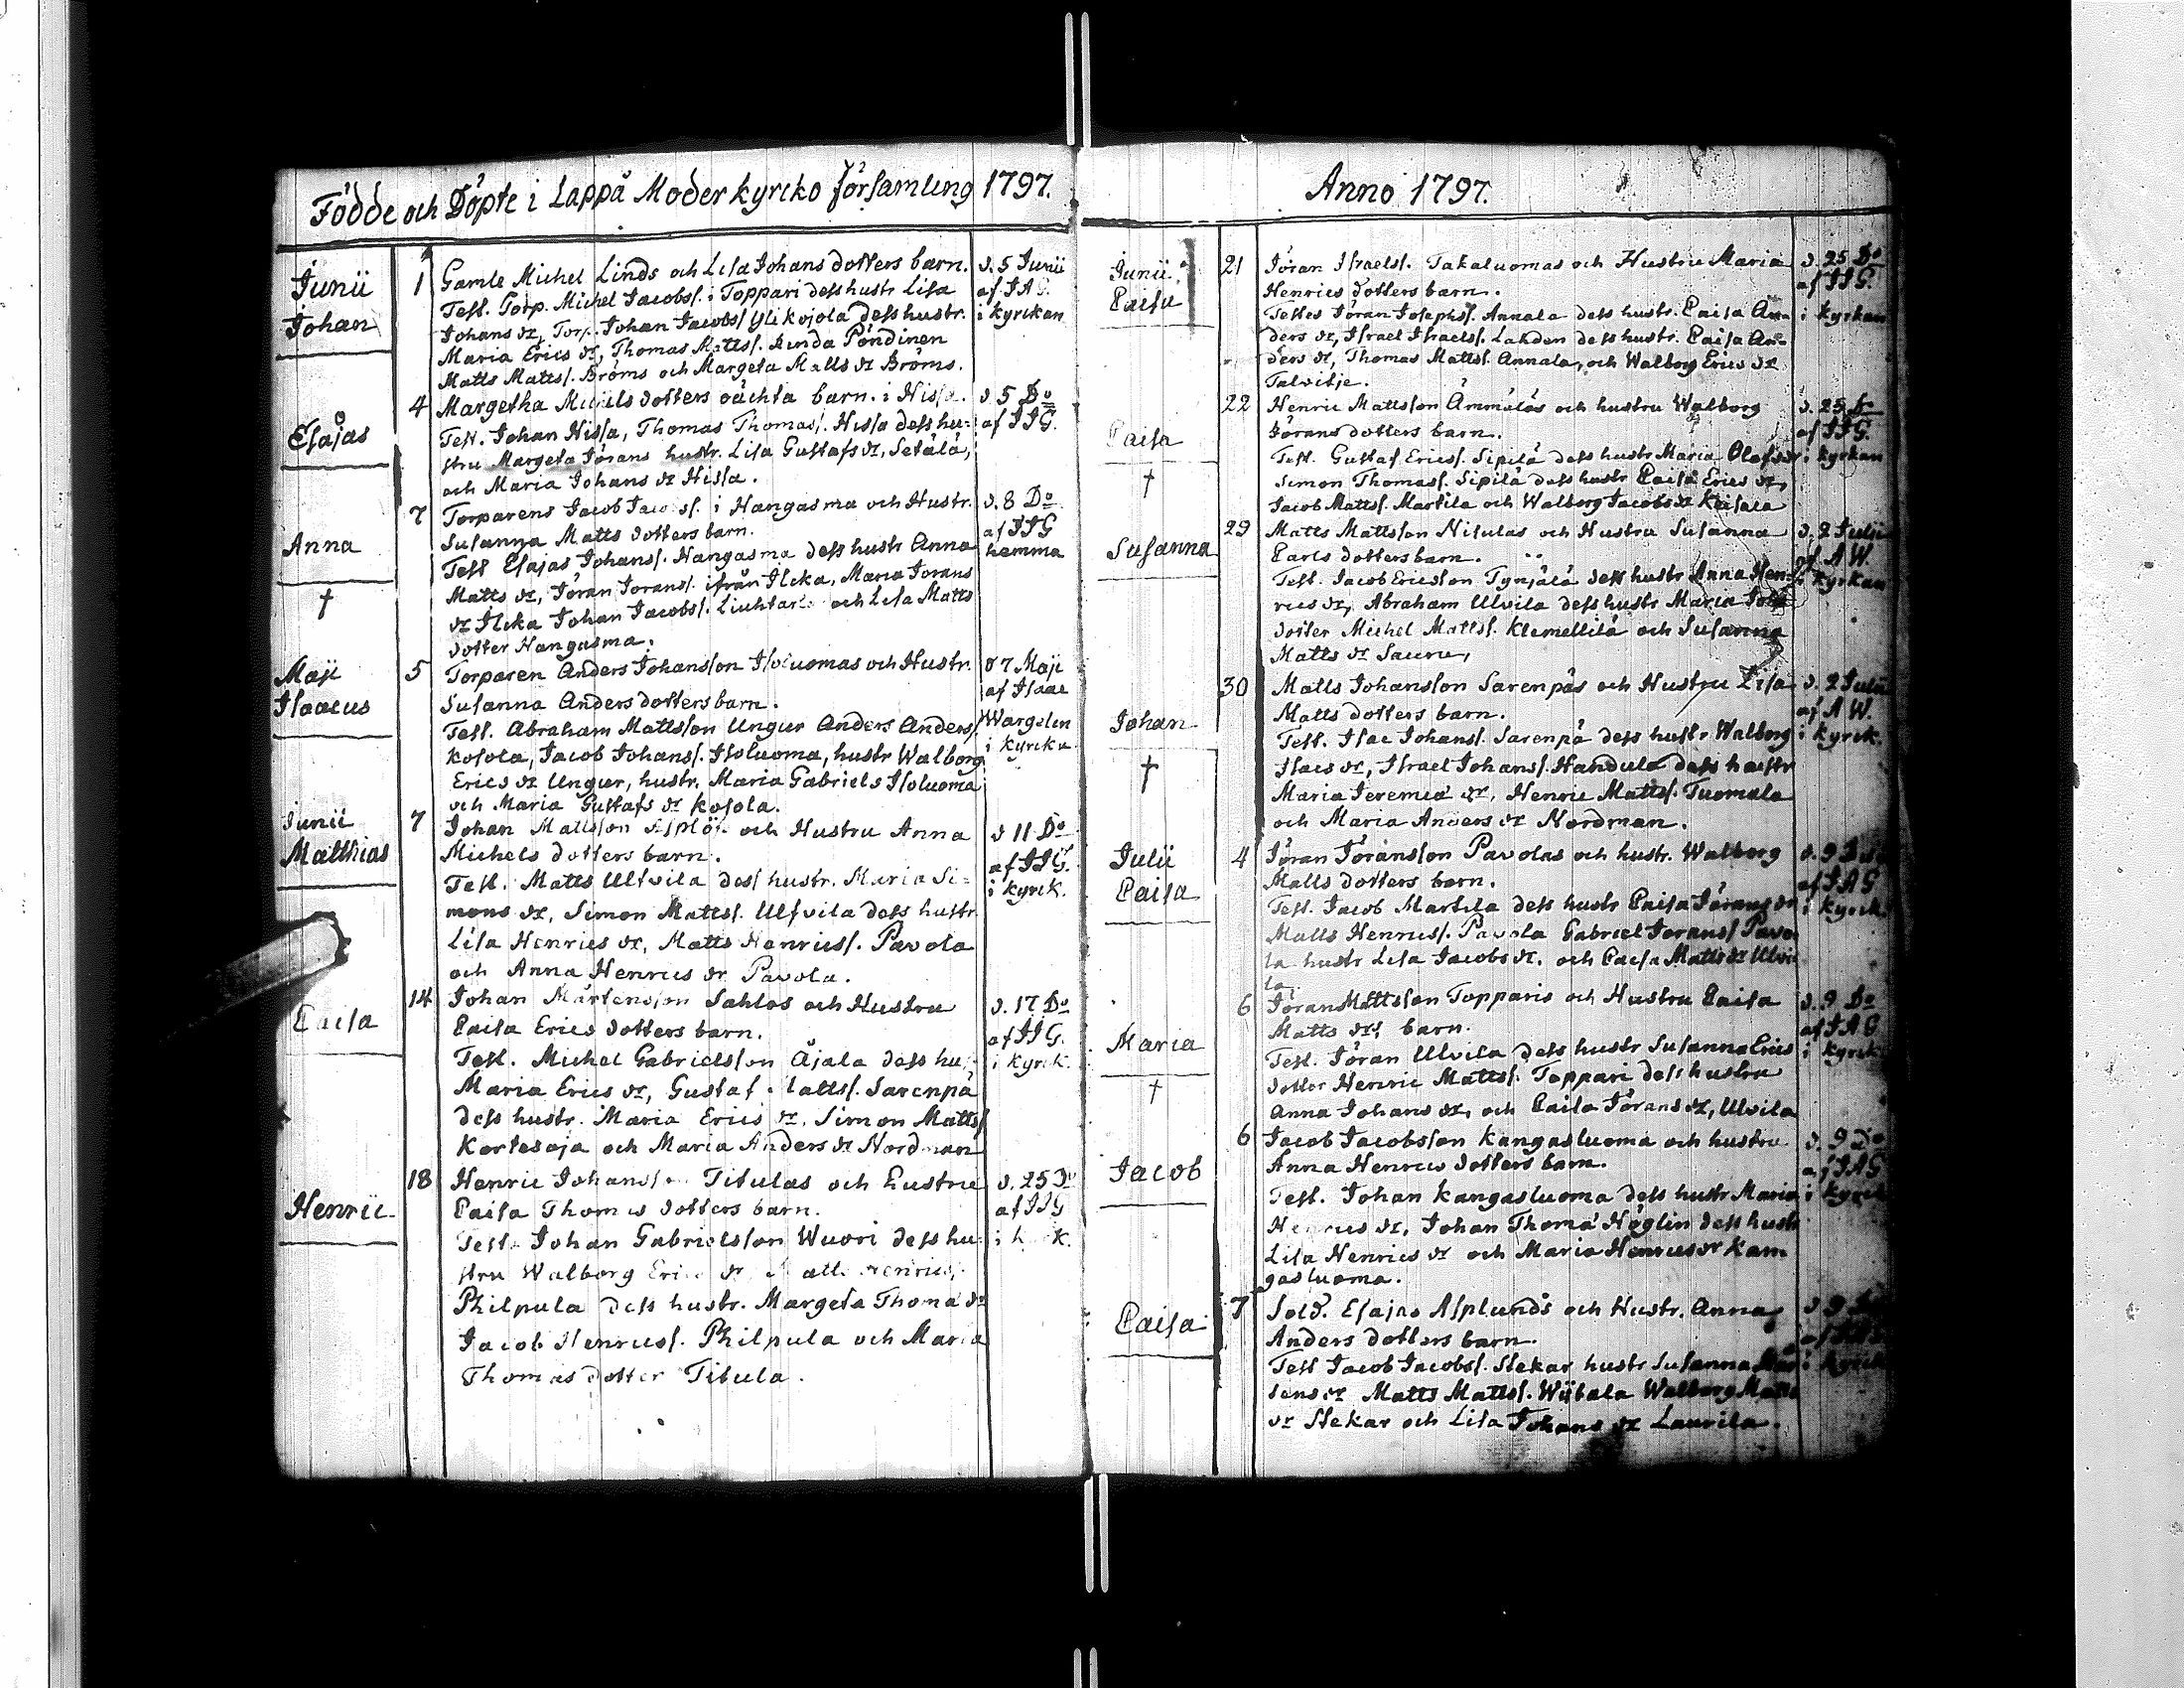 Födde och Döpte i Lappå Moderkyrko församling 1797.
Junii 1 Gamle Michel Linds och Lisa Johans dotters barn. d. 5 Junii
Johan Test. Torp. Michel Jacobs. i Toppari dess hustr Lisa af IAG.
Johans dr, Torp. Johan Jacobs Ylikojola dess hustr. i kyrckan
Maria Erics dr, Thomas Matts. Pöndinen
Matts Matts. Broms och Margeta Matts dr Broms.
Esajas 4 Margetha Michels dotters oächta barn. i Nissa. d 5 Do
Test. Johan Nissa, Thomas Thomas. Nissa dess hu= af IIG.
stru Margeta Jörans hustr. Lisa Gustafs dr, Setälä,
och Maria Johans dr Nissa.
Anna 7 Torparens Jacob Jacobs. i Hangasma och Hustr. d. 8 Do
Susanna Matts dotters barn. af IIG
† Test Esajas Johans. Hangasma dess hustr Anna hemma
Matts dr, Jöran Jörans. ifrån Ilcka, Maria Jorans
dr Ilcka Johan Jacobs. och Lisa Matts
dotter Hangasma.
Maji 5 Torparen Anders Johansson Isoluomas och Hustr. d 7 Maji
Isaacus Susanna Anders dotters barn. af Isaac
Test. Abraham Mattsson Ungur Anders Anders. Wargelin
Kosola, Jacob Johans. Isoluoma, hustr Walborg i kyrcka
Erics dr Ungur, hustr. Maria Gabriels Isoluoma
och Maria Gustafs dr Kosola.
Junii 7 Johan Mattsson och Hustru Anna d 11 Do
Matthias Michels dotters barn. af IIG.
Test. Matts Ulfvila dess hustr. Maria Si= i kyrck.
mons dr, Simon Matts. Ulfvila dess hustr.
Lisa Henrics dr, Matts Henrics. Pavola
och Anna Henrics dr Pavola.
Caisa 14 Johan Mårtensson Sahlos och Hustru d. 17 Do
Caisa Erics dotters barn. af IIG.
Test. Michel Gabrielsson Äjala dess hu i kyrck.
Maria Erics dr, Gustaf Matts. Sarenpä
dess hustr. Maria Erics dr. Simon Matts
Kortesoja och Maria Anders dr Nordman
Henric 18 Henric Johansson Titulas och Hustru d. 25 Do
Caisa Thomas dotters barn. af IIG
Test. Johan Gabrielsson Wuori dess hu
stru Walborg Erics dr Henrics,
Philpula dess hustr. Margeta Thoma dr
Jacob Henrics. Philpula och Maria
Thomas dotter Titula.
Anno 1797.
Junii 21 Jöran Israels. Takaluomas och Hustru Maria d. 25 Do
Caisa Henrics dotters barn. af IIG.
Testes Jöran Josephs. Annala dess hustr. Caisa An= i kyrkan
ders dr, Israel Israels. Lahden dess hustr. Caisa An=
ders dr, Thomas Matts. Annala, och Walborg Erics dr
Talvitje.
Caisa 22 Henric Mattsson Ämmäläs och hustru Walborg d. 25 Do
Jörans dotters barn. af IIG.
† Test. Gustaf Erics. Sipilä dess hustr Maria Olofs dr i kyrkan
Simon Thomas. Sipilä dess hustr Caisa Erics dr,
Jacob Matts. Martila och Walborg Jacobs dr Keisala
Susanna 29 Matts Mattsson Nisulas och Hustru Susanna d. 2 Julii
Carls dotters barn. af AW.
Test. Jacob Ericsson Tynjälä dess hustr Anna Hen= i kyrkan
rics dr, Abraham Ulvila dess hustr Maria
dotter Michel Matts. Klemettilä och Susanna
Matts dr Sauru,
Johan 30 Matts Johansson Sarenpäs och Hustru Lisa d. 2 Julii
Matts dotters barn. af AW.
† Test. Isac Johans. Sarenpä dess hustr Walborg i kyrck.
Isacs dr, Israel Johans. Handula dess hustr
Maria Jeremiä dr, Henric Matts. Tuomala
och Maria Anders dr Nordman.
Julii 4 Jöran Jöransson Pavolas och hustr. Walborg d. 9 Do
Caisa Matts dotters barn. af IAG
Test. Jacob Martila dess hustr Caisa Jörans dr i kyrck.
Matts Henrics. Pavola Gabriel Jorans Pavo
la hustr Lisa Jacobs dr, och Caisa Matts dr Ulvi
la.
Maria 6 Jöran Mattsson Topparis och Hustru Caisa d. 9 Do
Matts dr. barn. af IAG
† Test. Jöran Ulvila dess hustr Susanna Erics i kyrck
dotter Henric Matts. Toppari dess hustru
Anna Johans dr, och Caisa Jörans dr, Ulvila
Jacob 6 Jacob Jacobsson Kangasluoma och hustru d. 9 Do
Anna Henrics dotters barn. af IAG
Test. Johan Kangasluoma dess hustr Maria i kyrck
Henrics dr, Johan Thoma Höglin dess hustr
Lisa Henrics dr och Maria Henrics dr Kan
gasluoma.
Caisa 7 Sold. Esajas Asplunds och Hustr. Anna d 9
Anders dotters barn.
Test Jacob Jacobs. Stekar hustr Susanna i kyrck
tens dr Matts Matts. Wijtala Walborg Matts
dr Stekar och Lisa Johans dr Laurila.